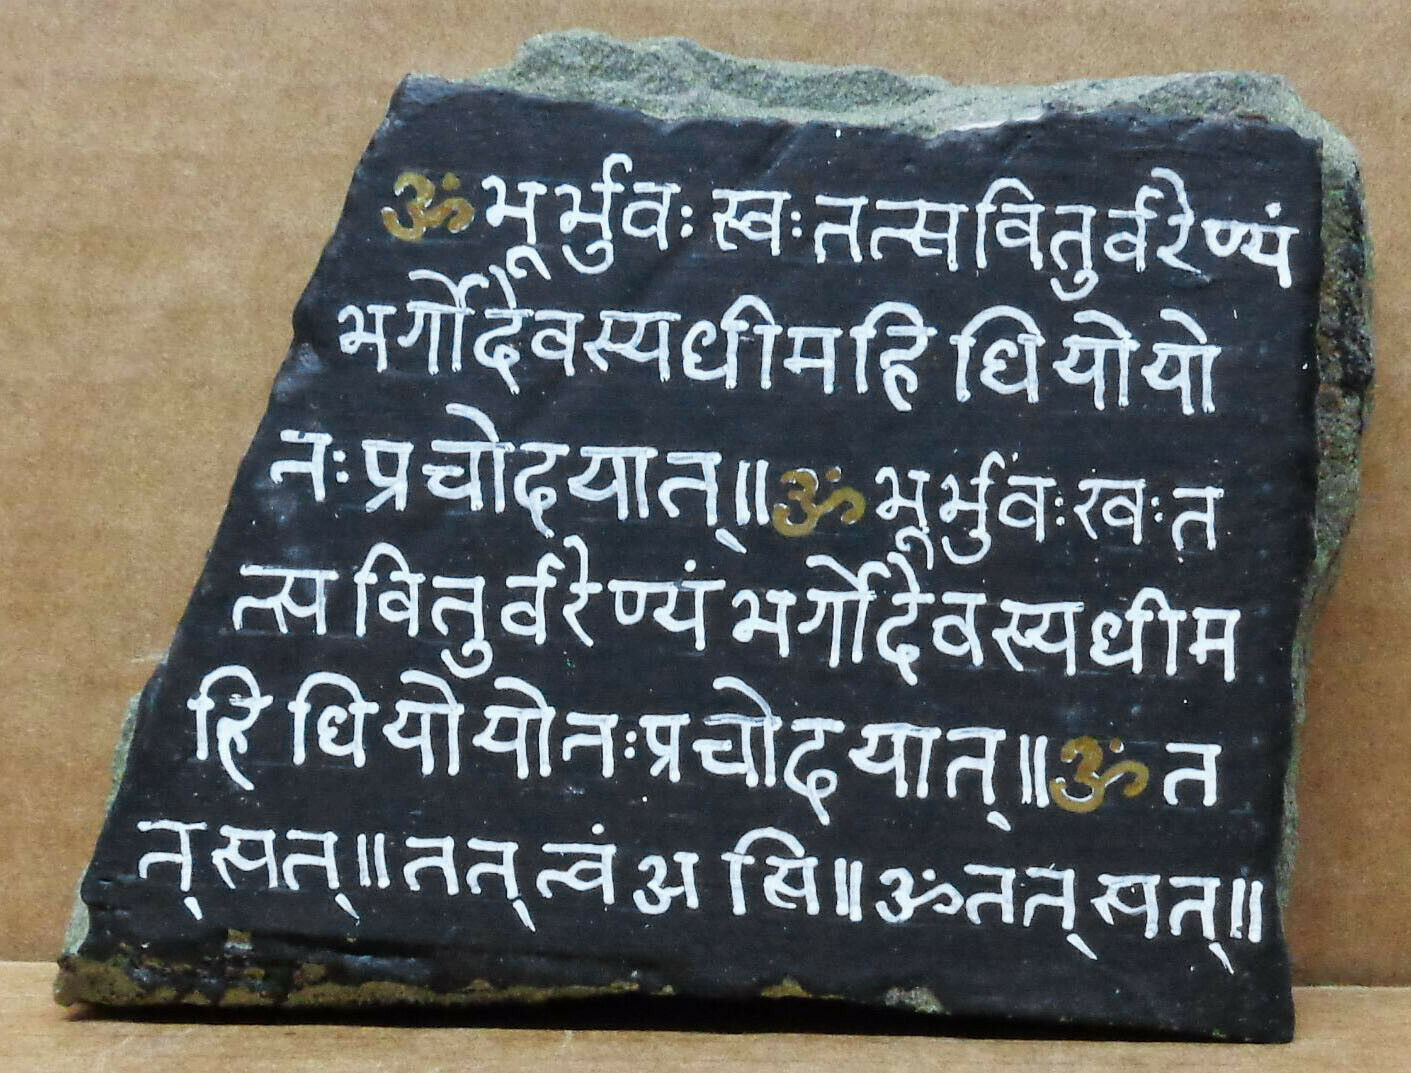 ॐ भूर्भुवः स्वः तत्सवितुर्वरेण्यं
भर्गोदेवस्यधीमहि धियोयो
नःप्रचोदयात्॥ॐ भूर्भुवः स्वः त
त्सवितुर्वरेण्यं भर्गोदेवस्यधीम
हि धियोयोनःप्रचोदयात्॥ॐ त
त् सत्॥तत् त्वं असि॥ॐतत् सत्॥